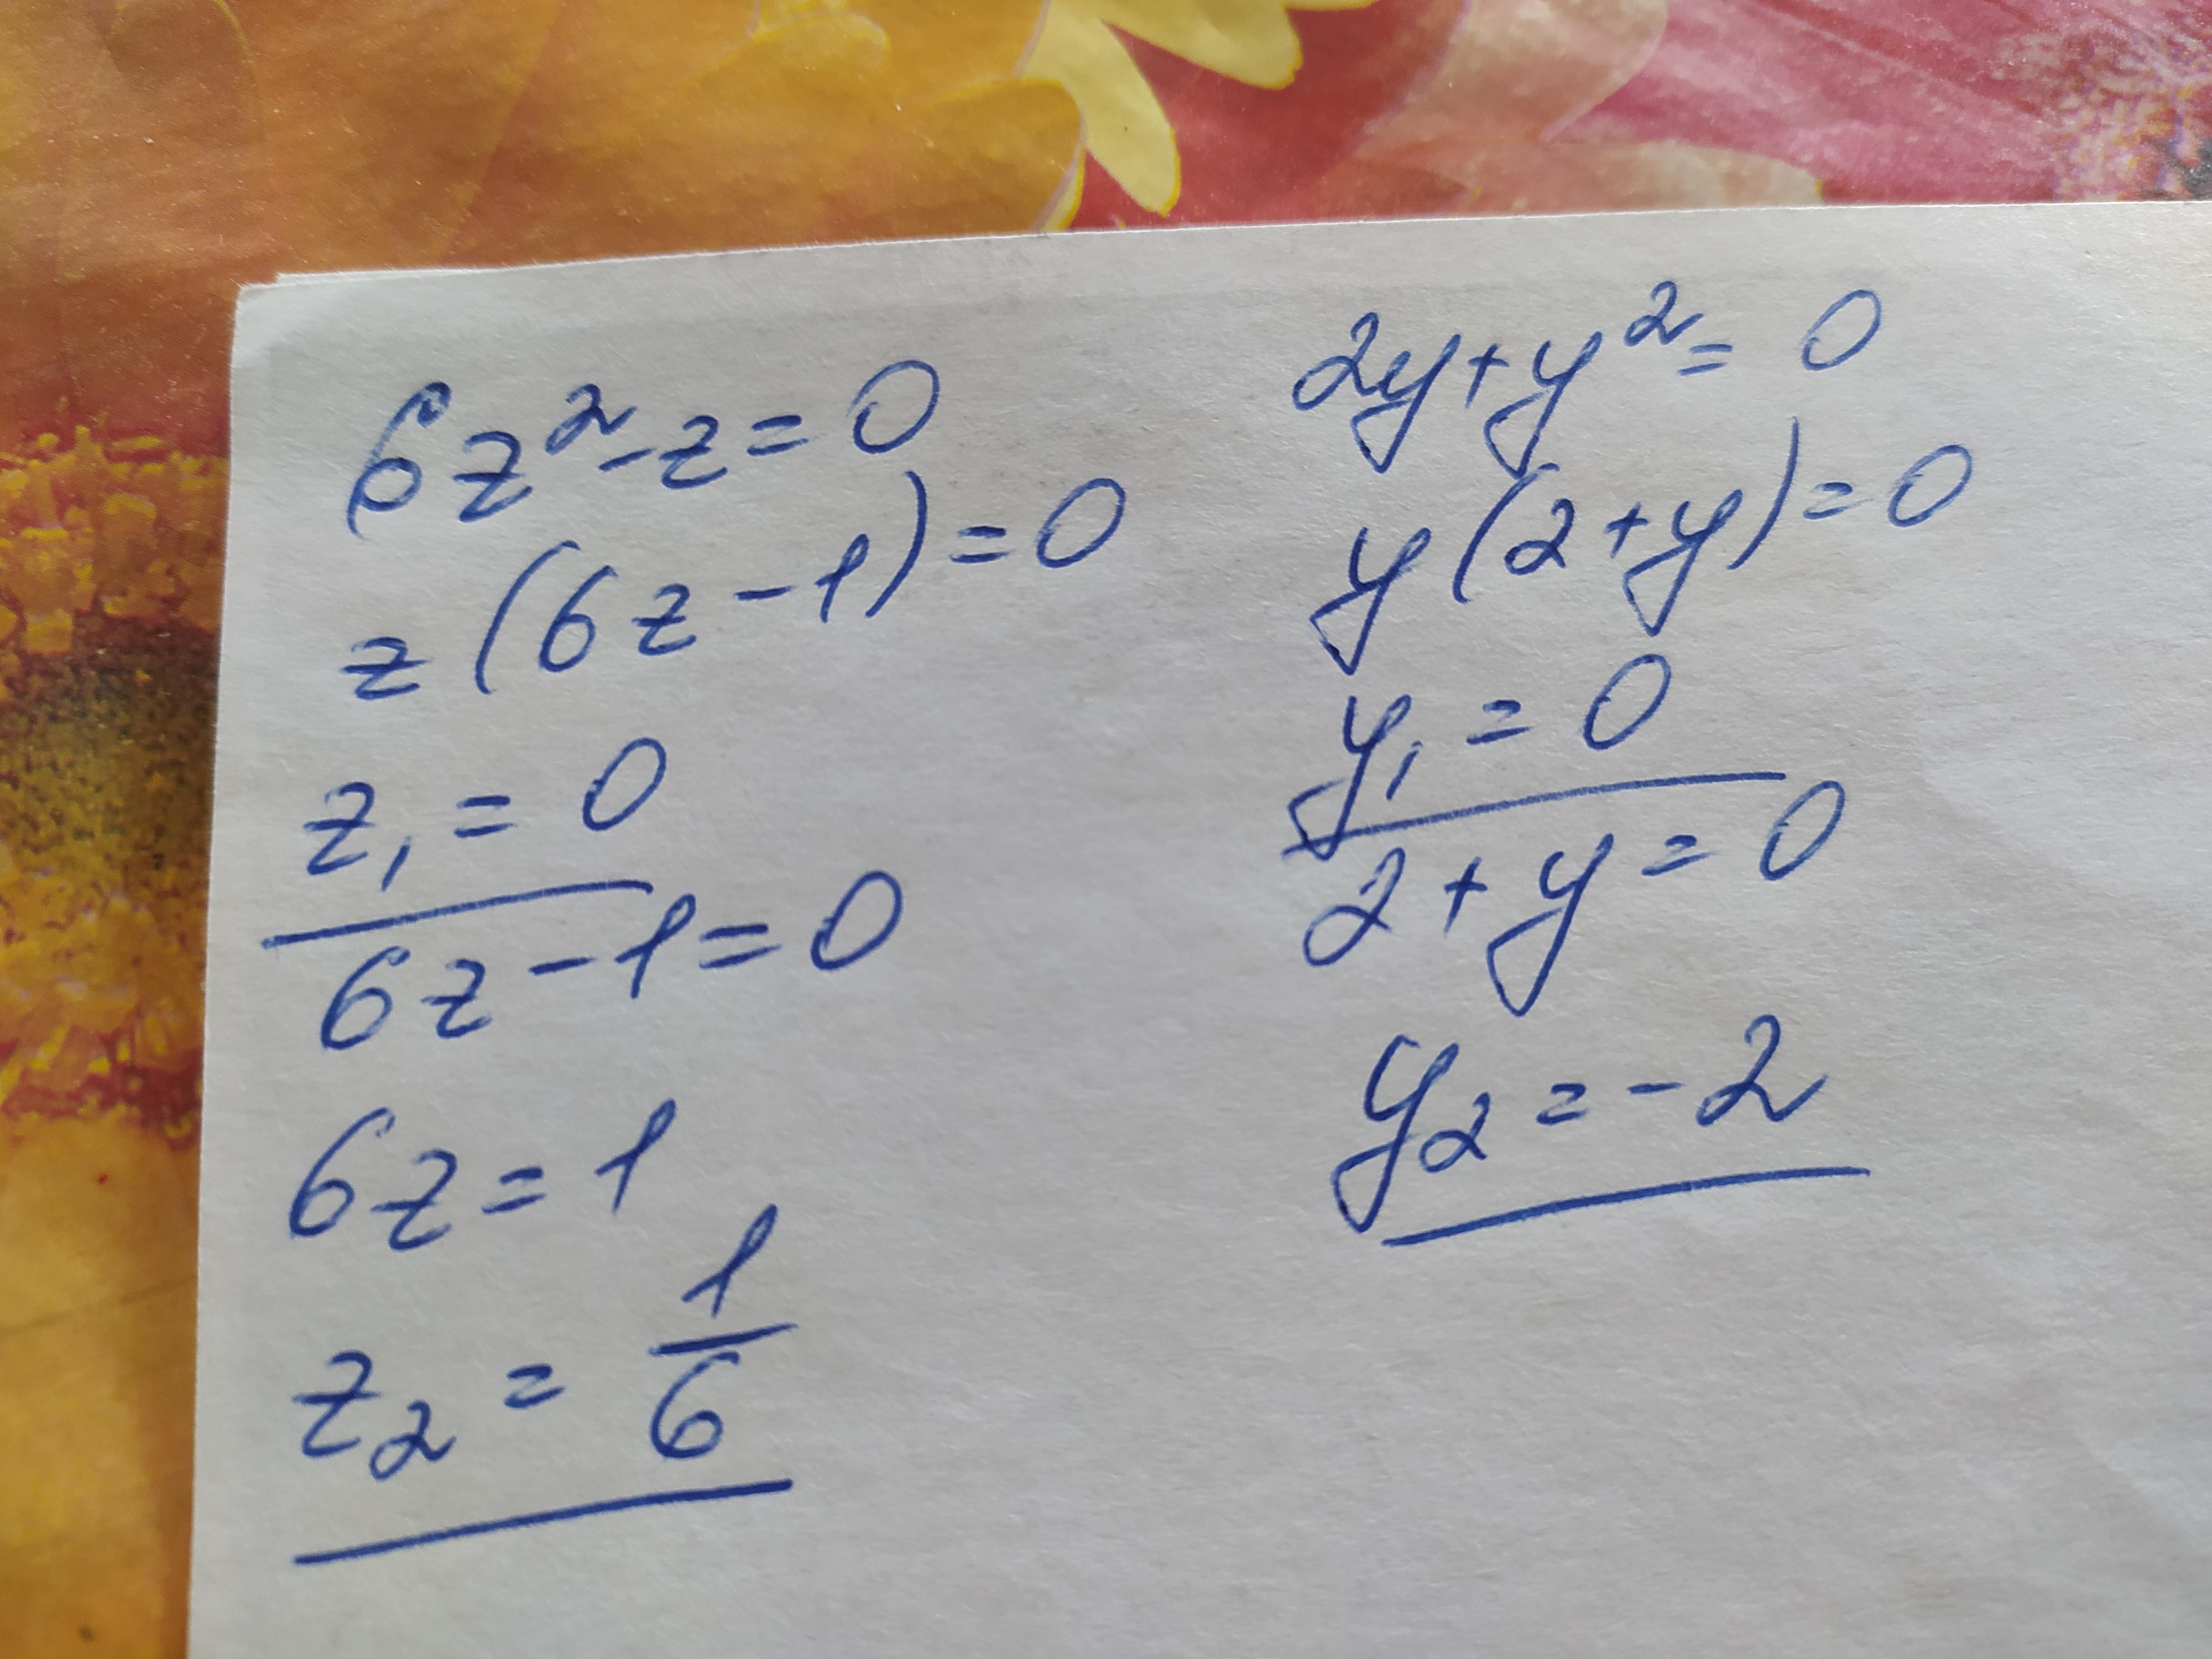 6z²-z=0
z(6z-1)=0
z₁=0
6z-1=0
6z=1
z₂=1/6
2y+y²=0
y(2+y)=0
y₁=0
2+y=0
y₂=-2